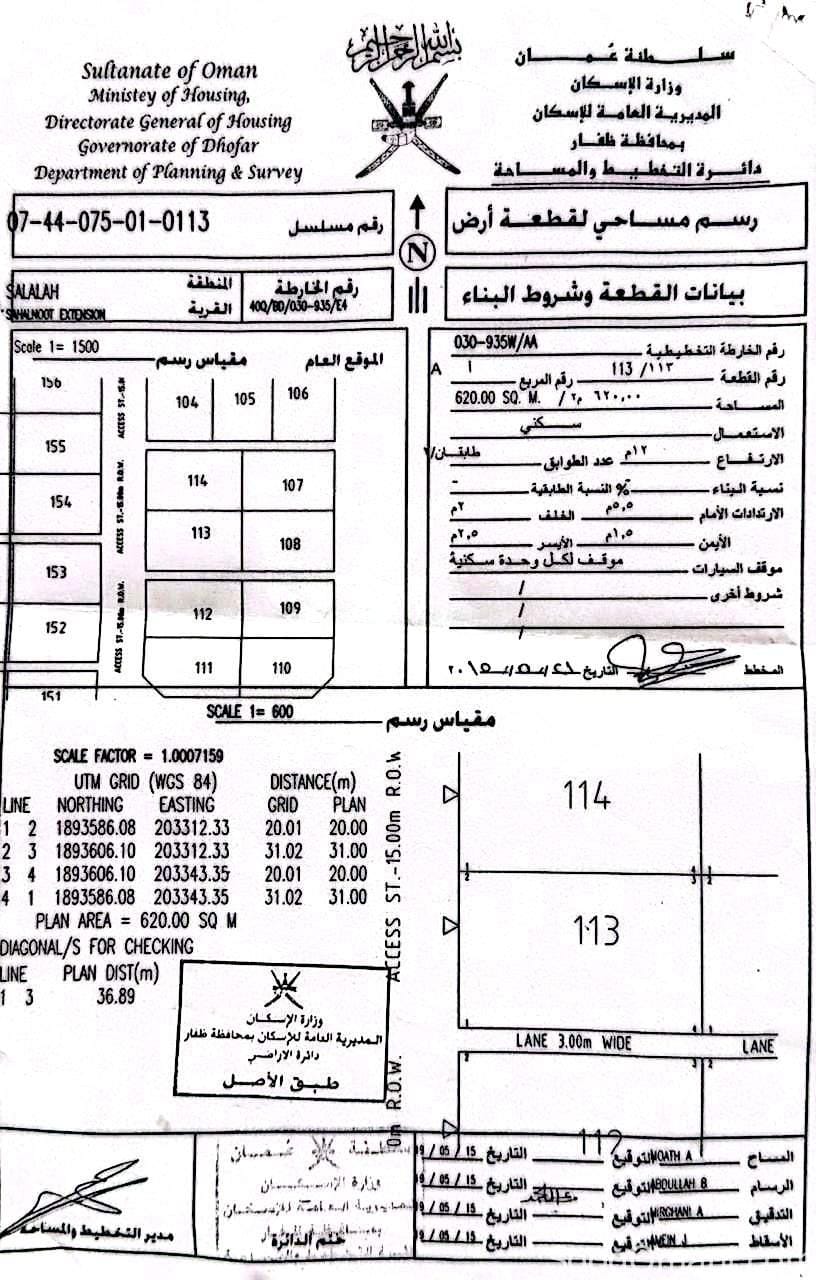 بسم الله الرحمن الرحيم
Sultanate of Oman
Ministey of Housing,
Directorate General of Housing
Governorate of Dhofar
Department of Planning & Survey
سلطنة عُمان
وزارة الإسكان
المديرية العامة للإسكان
بمحافظة ظفار
دائرة التخطيط والمساحة
رسم مساحي لقطعة أرض
N
رقم مسلسل 07-44-075-01-0113
بيانات القطعة وشروط البناء
رقم الخارطة 40Q/BD/030-935/E4
المنطقة SALALAH
القرية SAHALNOOT EXTENSION
رقم الخارطة التخطيطية 030-935W/AA
رقم القطعة ١١٣/ 113 رقم المربع ا A
المساحة ٦٢٠,٠٠ م٢ / 620.00 SQ. M.
الاستعمال سكني
الارتفاع ١٢م عدد الطوابق طابقان/٢
نسبة البناء -% النسبة الطابقية -
الارتدادات الأمام ٥,٥م الخلف ٢م
الأيمن ١,٥م الأيسر ٢,٥م
موقف السيارات موقف لكل وحدة سكنية
شروط أخرى /
/
/
المخطط التاريخ
الموقع العام مقياس رسم Scale 1= 1500
156
155
154
153
152
151
ACCESS ST.-15.
ACCESS ST.-15.00m R.O.W.
ACCESS ST.-15.00m R.O.W.
104 105 106
114 107
113 108
112 109
111 110
مقياس رسم SCALE 1= 600
SCALE FACTOR = 1.0007159
UTM GRID (WGS 84) DISTANCE(m)
LINE NORTHING EASTING GRID PLAN
1 2 1893586.08 203312.33 20.01 20.00
2 3 1893606.10 203312.33 31.02 31.00
3 4 1893606.10 203343.35 20.01 20.00
4 1 1893586.08 203343.35 31.02 31.00
PLAN AREA = 620.00 SQ M
DIAGONAL/S FOR CHECKING
LINE PLAN DIST(m)
1 3 36.89
ACCESS ST.-15.00m R.O.W
0m R.O.W.
114
113
LANE 3.00m WIDE LANE
112
وزارة الإسكان
المديرية العامة للإسكان بمحافظة ظفار
دائرة الاراضي
طبق الأصل
المساح MOATH A التوقيع التاريخ 19 / 05 / 15
الرسام ABDULLAH B التوقيع التاريخ 19 / 05 / 15
التدقيق MIRGHANI A التوقيع التاريخ 19 / 05 / 15
الأسقاط التوقيع التاريخ 19 / 05 / 15
ختم الدائرة
مدير التخطيط والمساحة